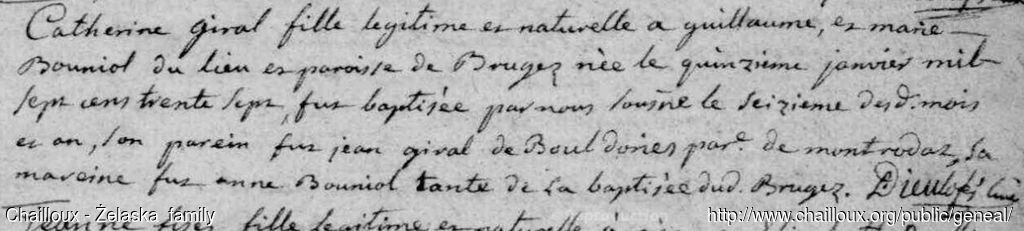 Catherine giral fille legitime et naturelle a guillaume, et marie
Bouniol du lieu et paroisse de Brugez née le quinzieme janvier mil
sept cens trente sept, fut baptisée par nous sousne le seizieme desd. mois
et an, son parein fut jean giral de Bouldoires par. de montrodat, sa
mareine fut anne Bouniol tante de la baptisée dud. Brugez. Dieulofés curé
Chailloux - Żelaska family
http://www.chailloux.org/public/geneal/
fille legitime et naturelle a